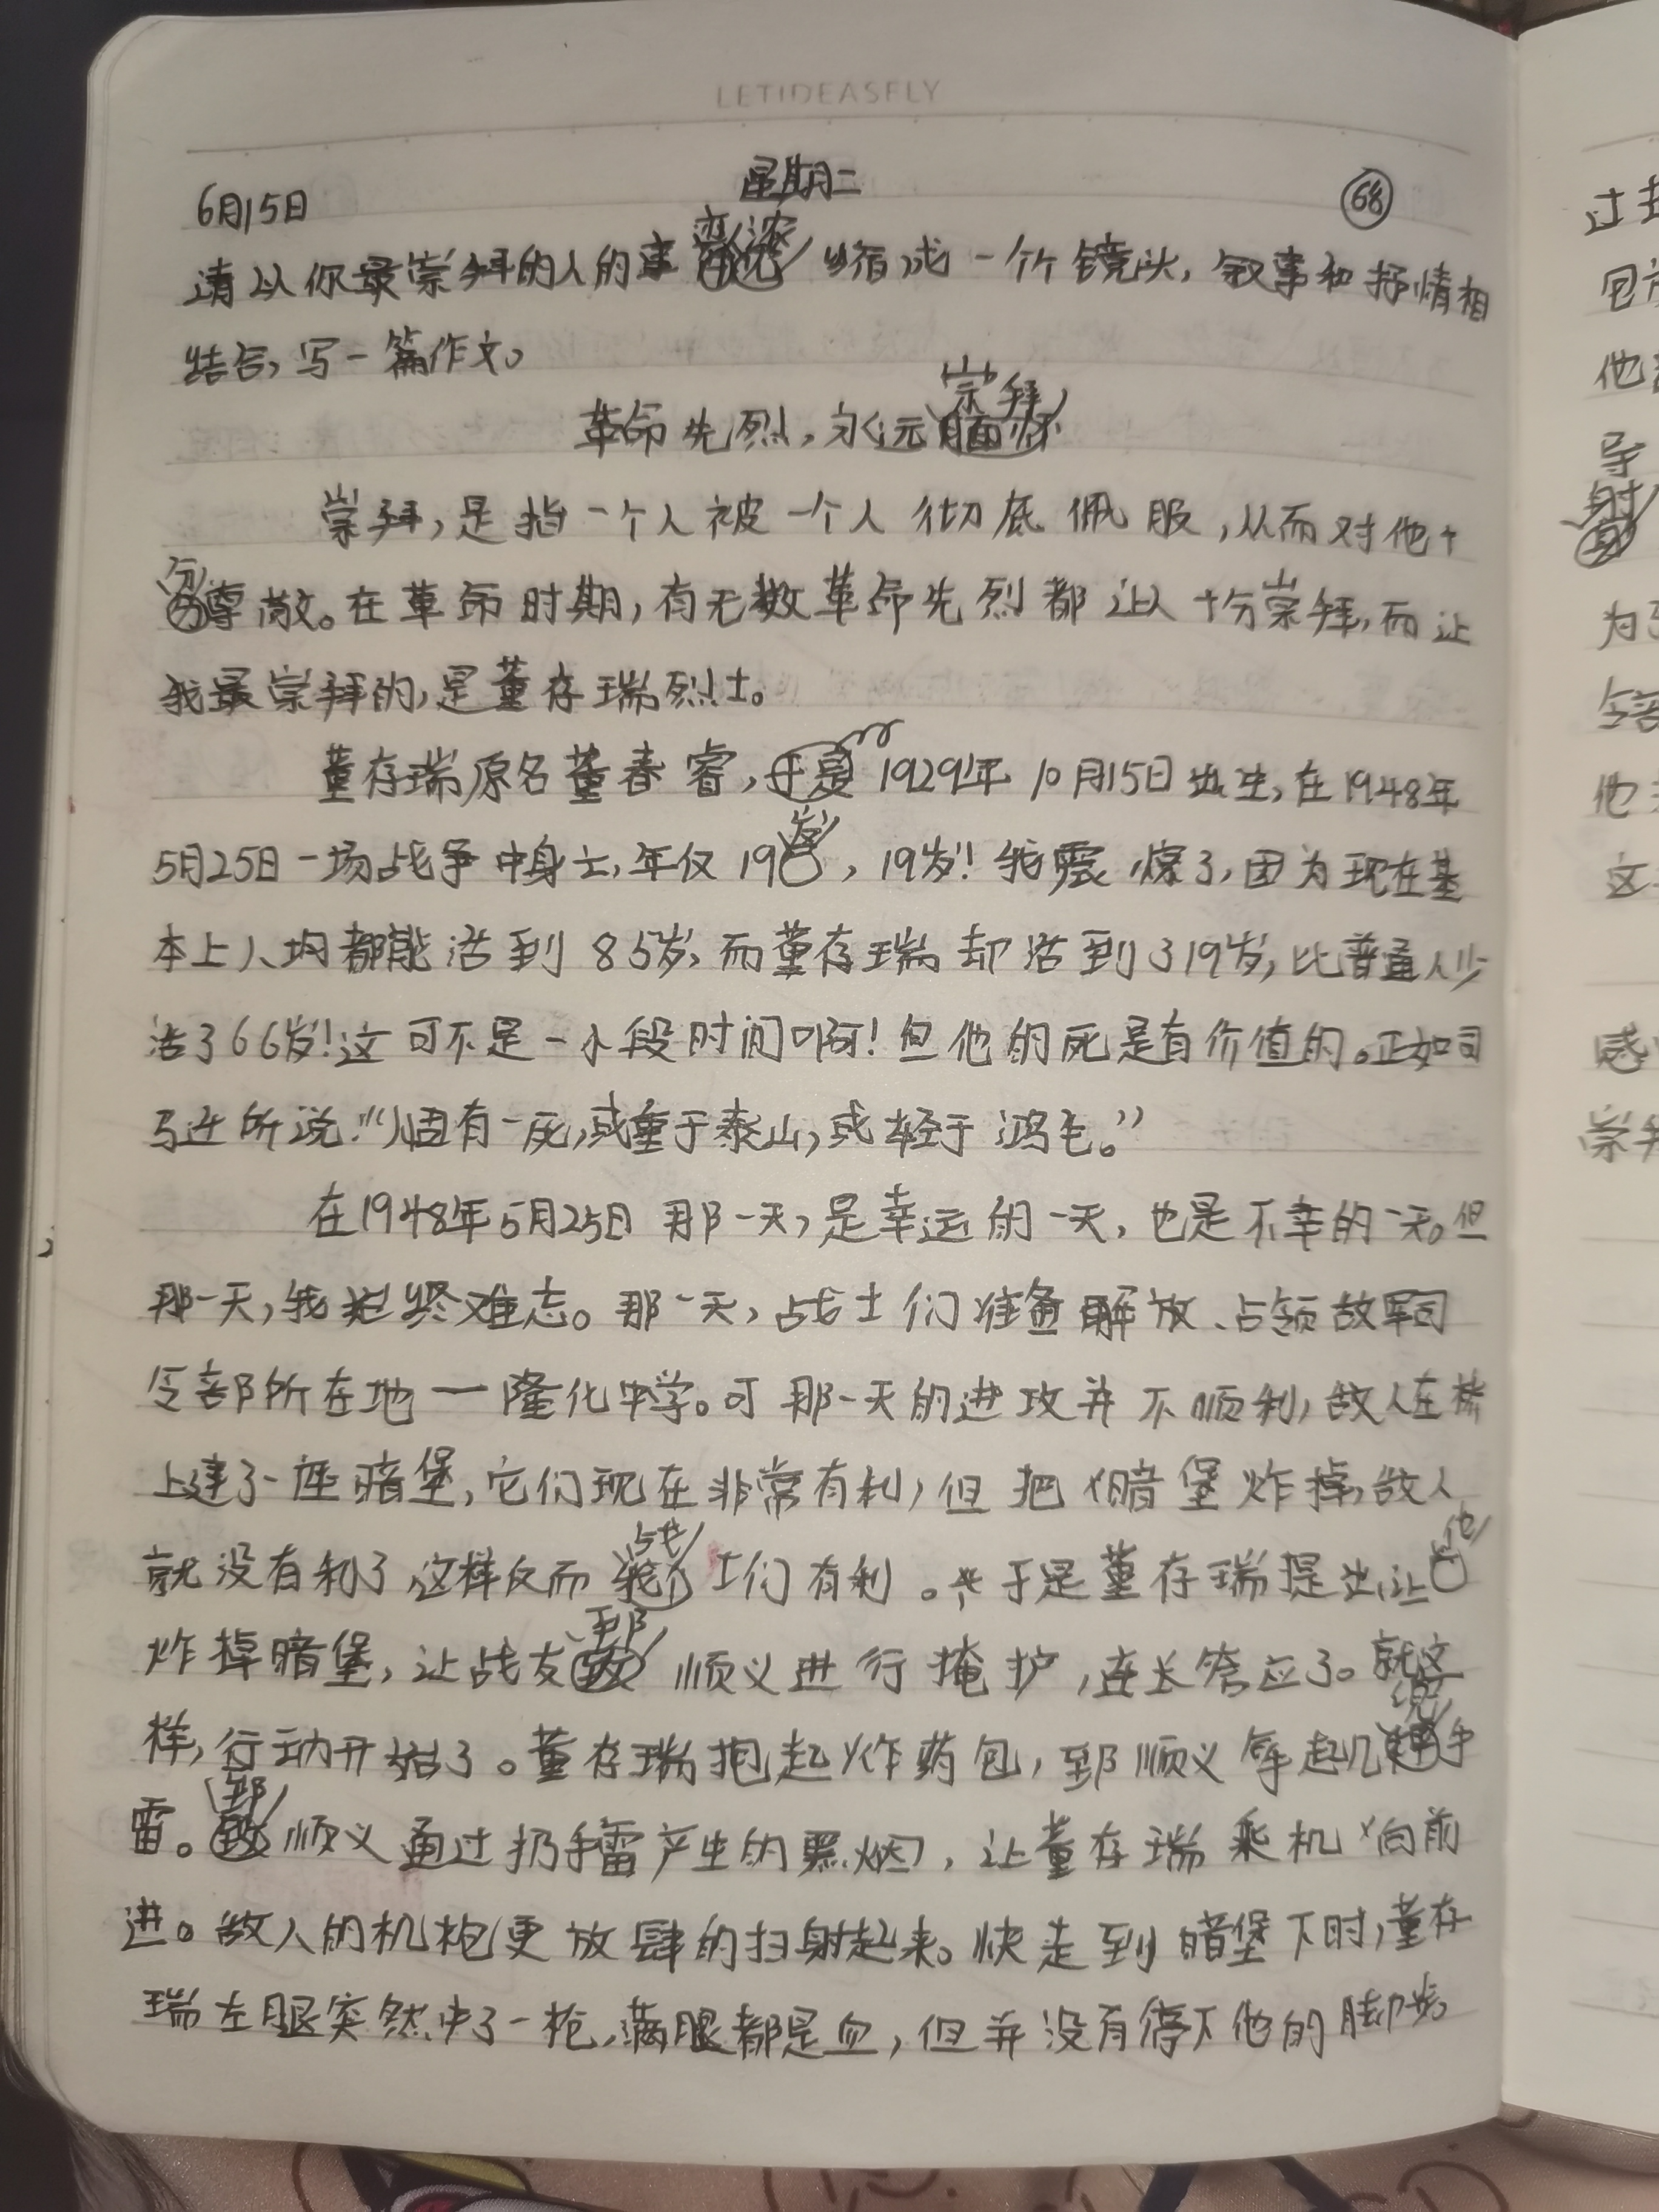 LETIDEASFLY
6月15日 星期二 68
请以你最崇拜的人的事变浓缩成一个个镜头,叙事和抒情相
结合,写一篇作文。
革命先烈,永远崇拜
崇拜,是指一个人被一个人彻底佩服,从而对他十
分尊敬。在革命时期,有无数革命先烈都让人十分崇拜,而让
我最崇拜的,是董存瑞烈士。
董存瑞原名董春睿,1929年10月15日出生,在1948年
5月25日一场战争中身亡,年仅19岁,19岁!我震惊了,因为现在基
本上人均都能活到85岁,而董存瑞却活到了19岁,比普通人少
活了66岁!这可不是一小段时间啊!但他的死是有价值的。正如司
马迁所说:“人固有一死,或重于泰山,或轻于鸿毛。”
在1948年5月25日那一天,是幸运的一天,也是不幸的一天。但
那一天,我始终难忘。那一天,战士们准备解放、占领敌军司
令部所在地一隆化中学。可那一天的进攻并不顺利,敌人在桥
上建了一座暗堡,它们现在非常有利,但把暗堡炸掉,敌人
就没有利了,这样反而战士们有利。于是董存瑞提出,让他
炸掉暗堡,让战友郅顺义进行掩护,连长答应了。就这
样,行动开始了。董存瑞抱起炸药包,郅顺义拿起几颗手
雷。郅顺义通过扔手雷产生的黑烟,让董存瑞乘机向前
进。敌人的机枪更放肆的扫射起来。快走到暗堡下时,董存
瑞左腿突然中了一枪,满腿都是血,但并没有停下他的脚步,
过
包
他
导
射
为
他
这
感
崇